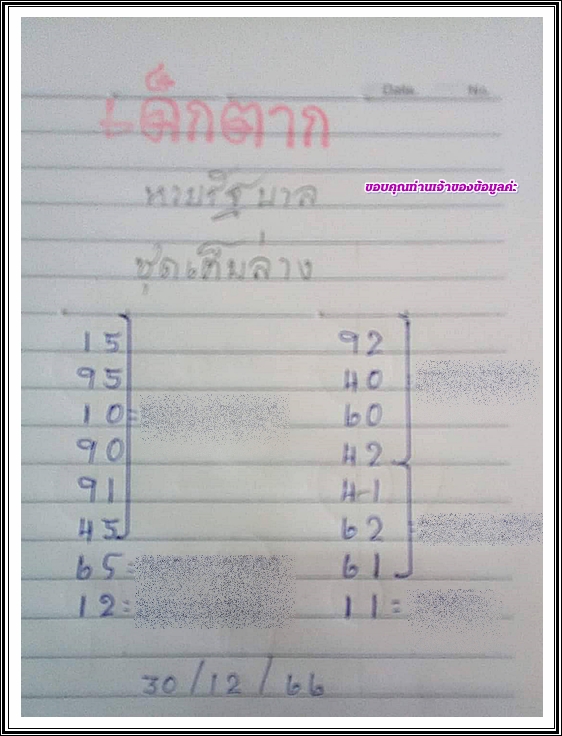 Date. No.
เด็กตาก
หวยรัฐบาล
ขอบคุณท่านเจ้าของข้อมูลค่ะ
ชุดเต็มล่าง
15 92
95 40
10= 60
90 42
91 41
45 62=
65= 61
12= 11=
30/12/66